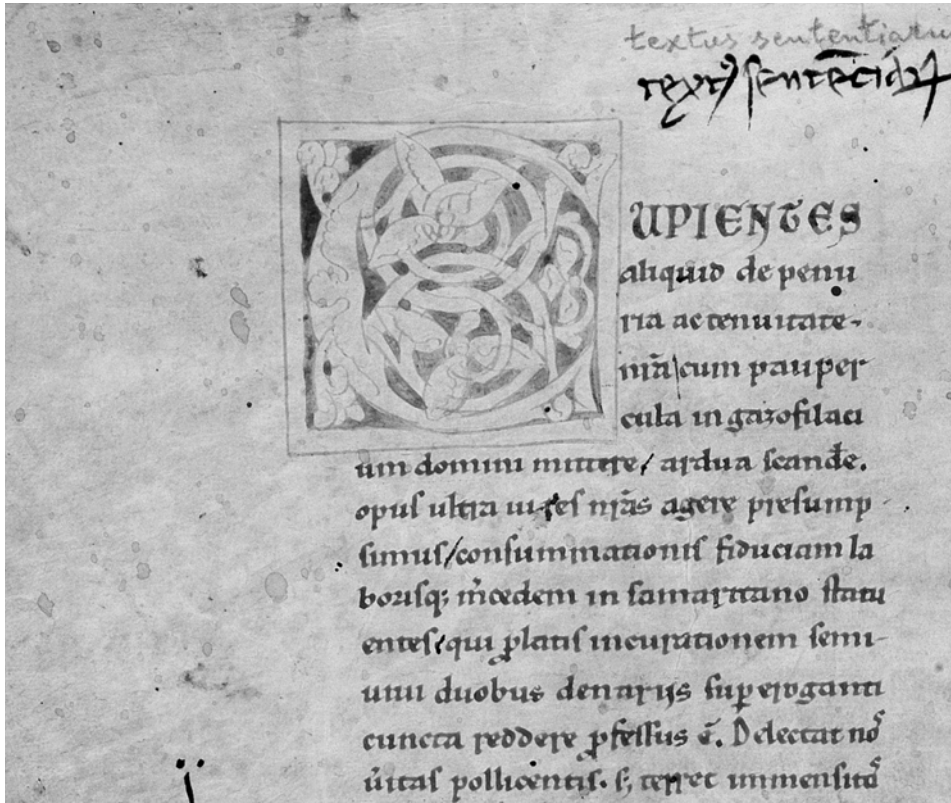 textus sententiaru
textꝰ sentēciaꝝ
CUPIENTES
aliquid de penu
ria ac tenuitate-
nr̄a cum pauper
cula in gazofilaci
um domini mittere/ ardua scande.
opus ultra uires nr̄as agere presump
simus/consummationis fiduciam la
borisq; m̄cedem in samaritano statu
entes/qui ꝓlatis in curationem semi-
uiui duobus denarijs suꝑeroganti
cuncta reddere ꝓfessus ē. Delectat noˢ
ūitas pollicentis. s; terret immensitaˢ